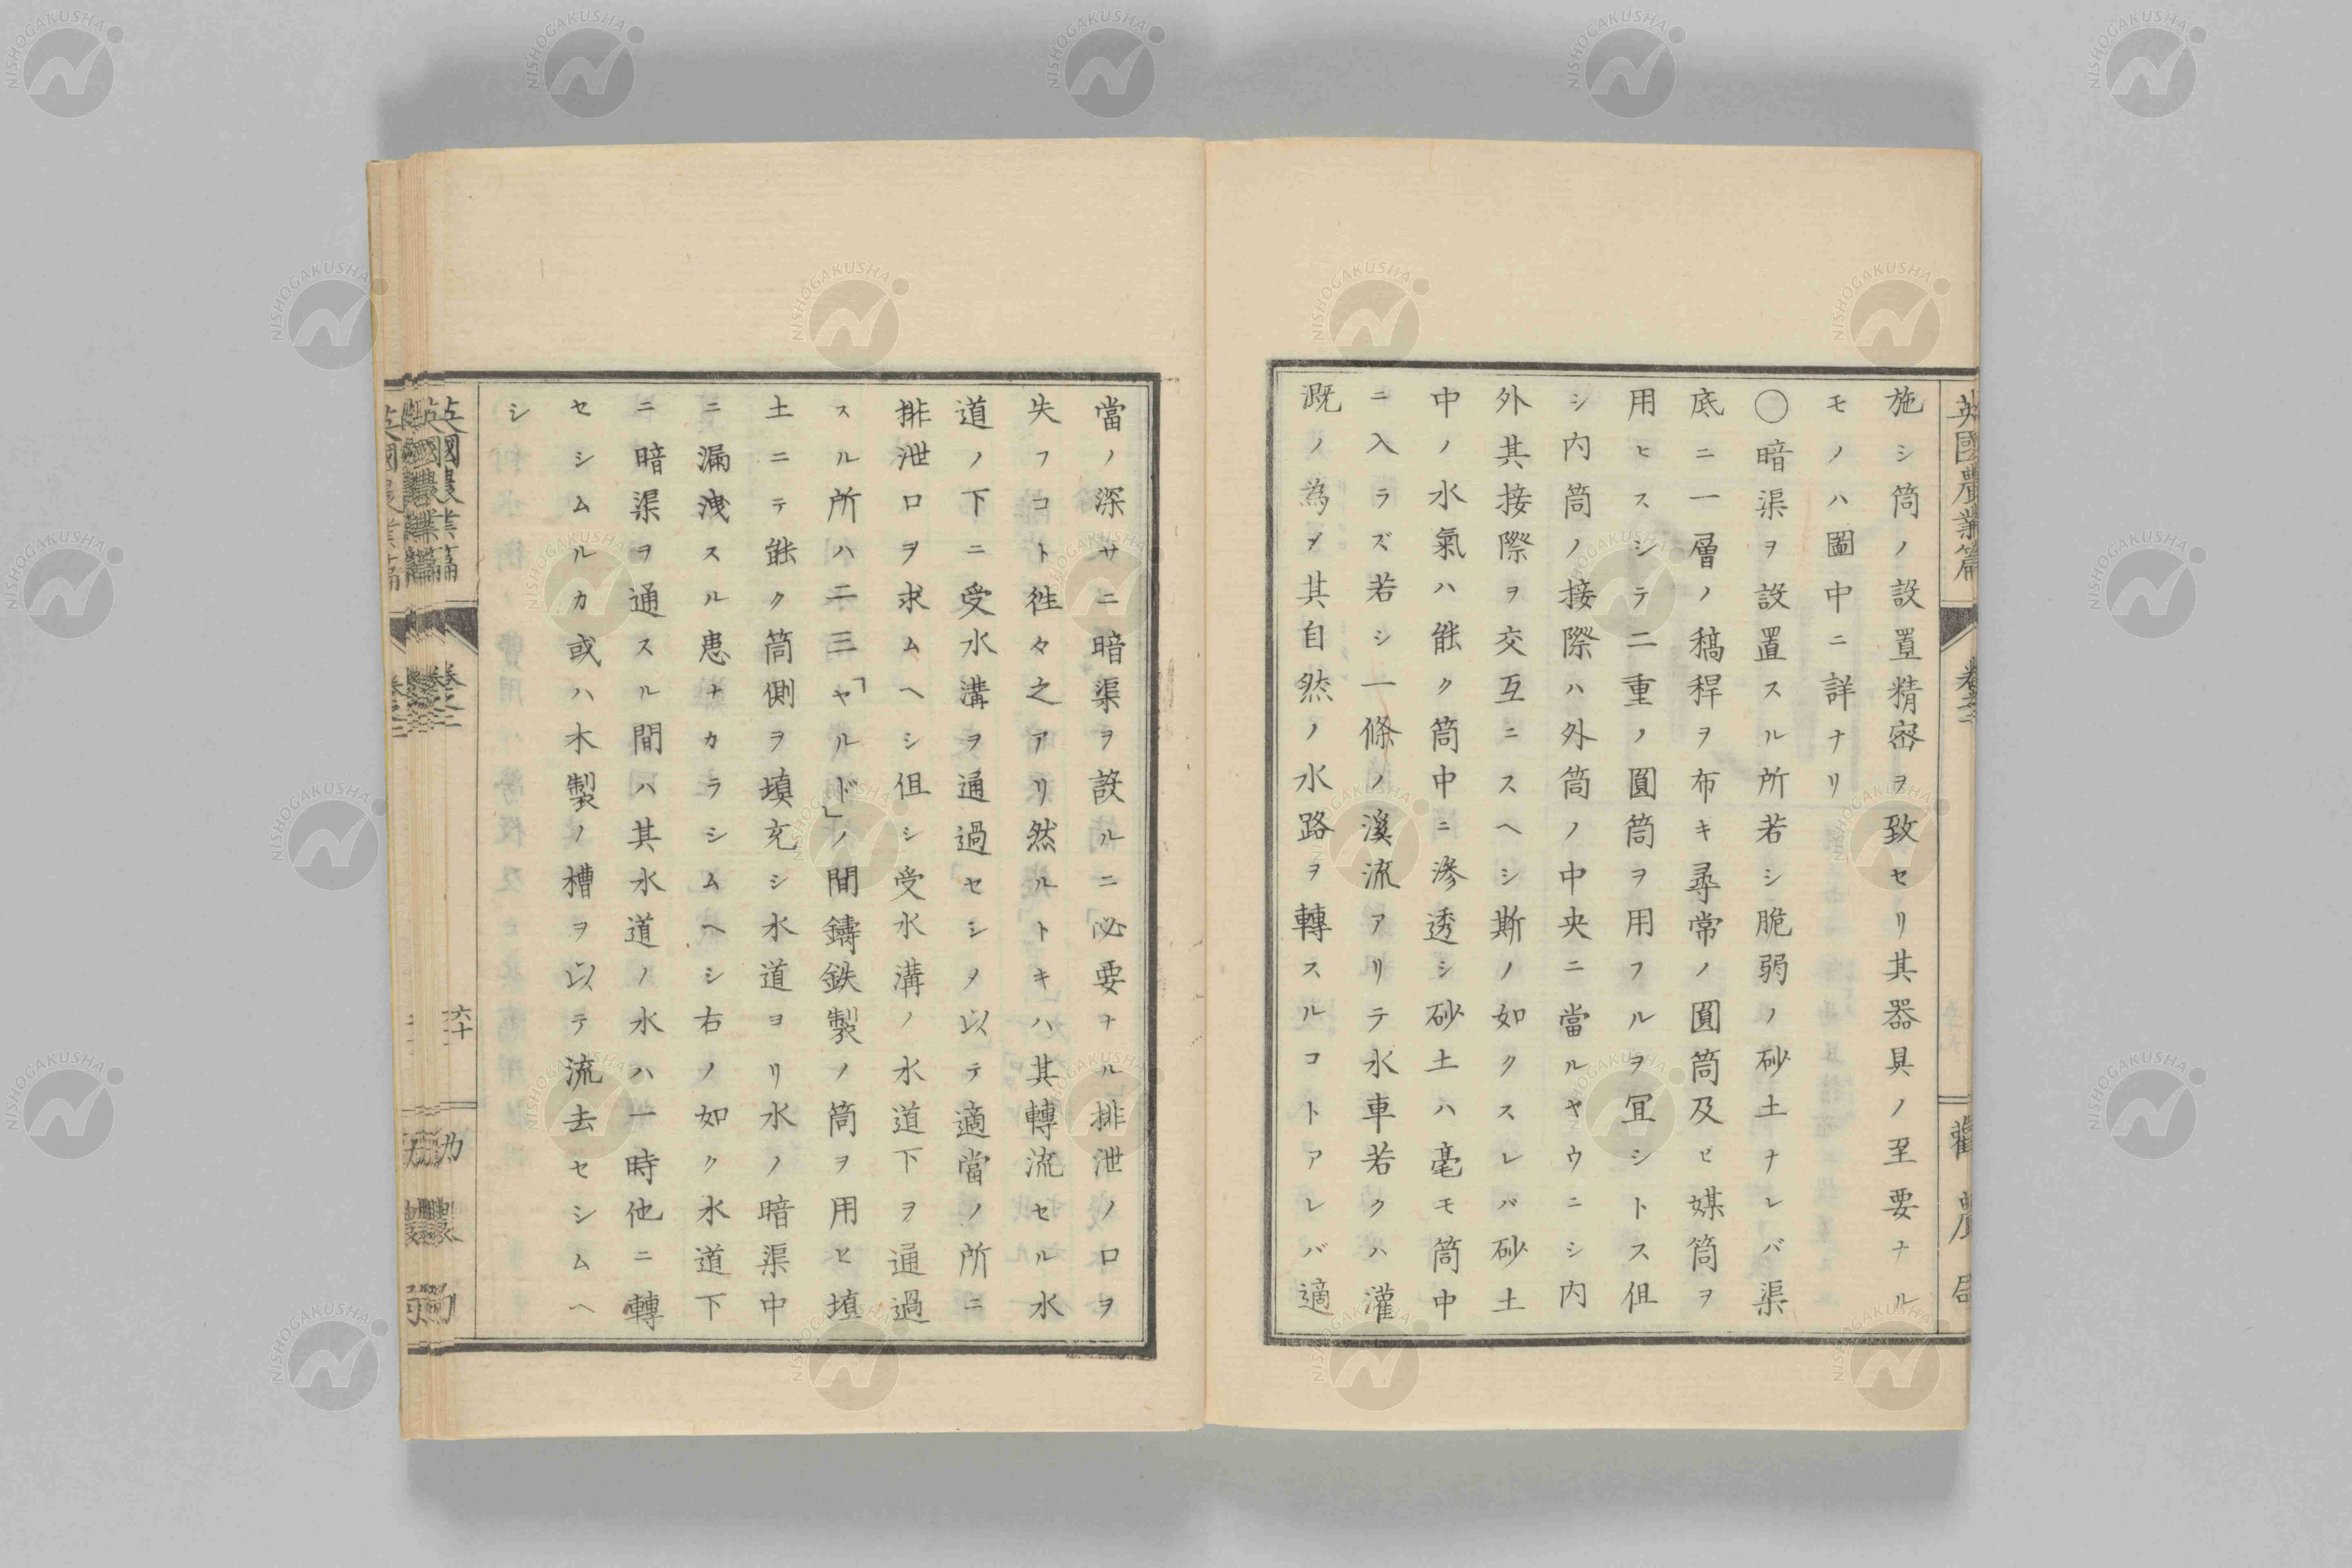 英國農業篇
卷之二
勸農局
施シ筒ノ設置精密ヲ致セリ其器具ノ至要ナル
モノハ圖中ニ詳ナリ
〇暗渠ヲ設置スル所若シ脆弱ノ砂土ナレバ渠
底ニ一層ノ稿稈ヲ布キ尋常ノ圓筒及ヒ媒筒ヲ
用ヒスシテ二重ノ圓筒ヲ用フルヲ冝シトス伹
シ内筒ノ接際ハ外筒ノ中央ニ當ルヤウニシ内
外其接際ヲ交互ニスヘシ斯ノ如クスレバ砂土
中ノ水氣ハ能ク筒中ニ滲透シ砂土ハ毫モ筒中
ニ入ラズ若シ一條ノ溪流アリテ水車若クハ灌
溉ノ為メ其自然ノ水路ヲ轉スルコトアレバ適
當ノ深サニ暗渠ヲ設ルニ必要ナル排泄ノ口ヲ
失フコト徃々之アリ然ルトキハ其轉流セル水
道ノ下ニ受水溝ヲ通過セシメ以テ適當ノ所ニ
排泄口ヲ求ムヘシ伹シ受水溝ノ水道下ヲ通過
スル所ハ二三「ヤルド」ノ間鑄鉄製ノ筒ヲ用ヒ埴
土ニテ能ク筒側ヲ填充シ水道ヨリ水ノ暗渠中
ニ漏洩スル患ナカラシムヘシ右ノ如ク水道下
ニ暗渠ヲ通スル間ハ其水道ノ水ハ一時他ニ轉
セシムルカ或ハ木製ノ槽ヲ以テ流去セシムヘ
シ
英國農業篇
卷之二
六十
NISHOGAKUSHA